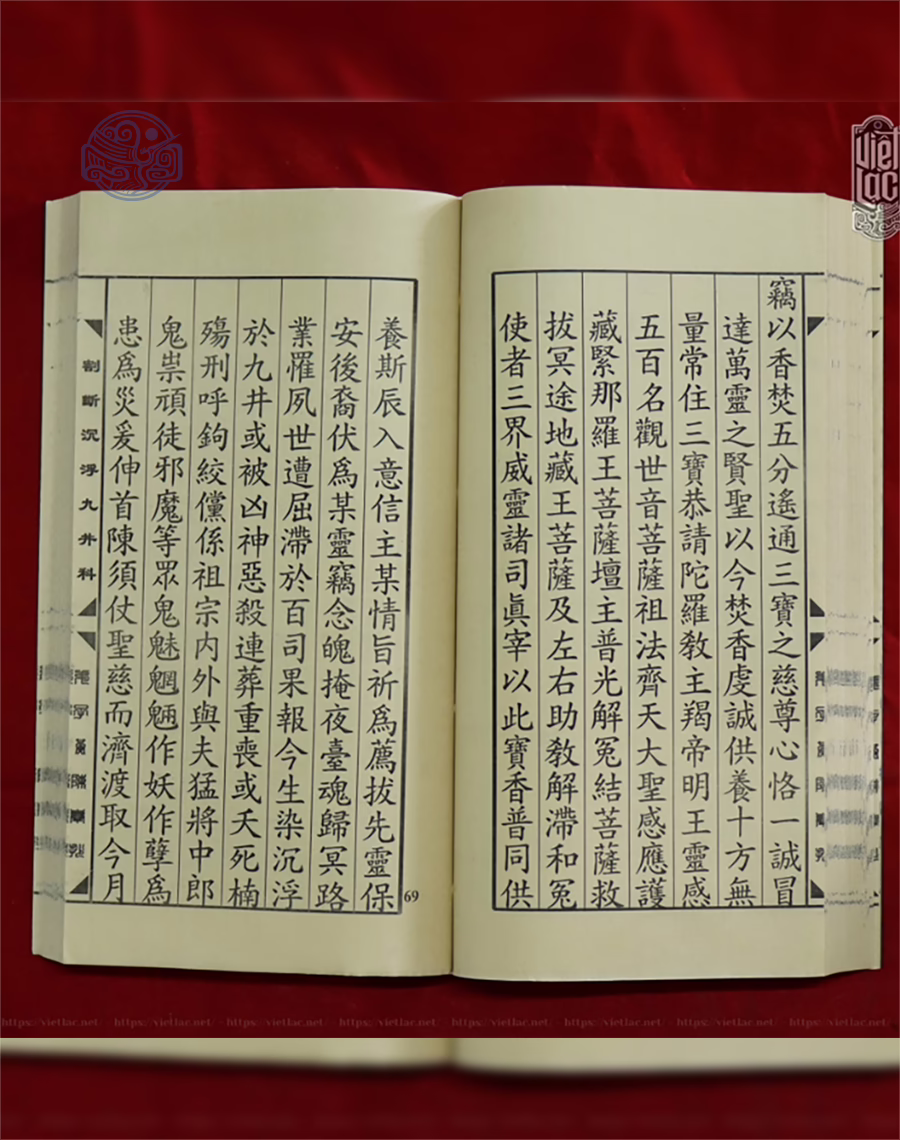 竊以香焚五分遙通三寶之慈尊心恪一誠冒
達萬靈之賢聖以今焚香虔誠供養十方無
量常住三寶恭請陀羅教主羯帝明王靈感
五百名觀世音菩薩祖法齊天大聖感應護
藏緊那羅王菩薩壇主普光解冤結菩薩救
拔冥途地藏王菩薩及左右助教解滯和冤
使者三界威靈諸司眞宰以此寶香普同供
養斯辰入意信主某情旨祈爲薦拔先靈保
安後裔伏爲某靈竊念魄掩夜臺魂歸冥路
業罹夙世遭屈滯於百司果報今生染沉浮
於九井或被凶神惡殺連葬重喪或夭死楠
殤刑呼鉤絞儻係祖宗内外與夫猛將中郎
鬼祟頑徒邪魔等眾鬼魅魍魎作妖作孽爲
患爲災爰伸首陳須仗聖慈而濟渡取今月
割斷沉浮九井科
69
Việt Lạc
https://vietlac.net/ - https://vietlac.net/ - https://vietlac.net/ - https://vietlac.net/ - https://vietlac.net/ - https://vietlac.net/ - https://vietlac.net/ - https://vietlac.net/